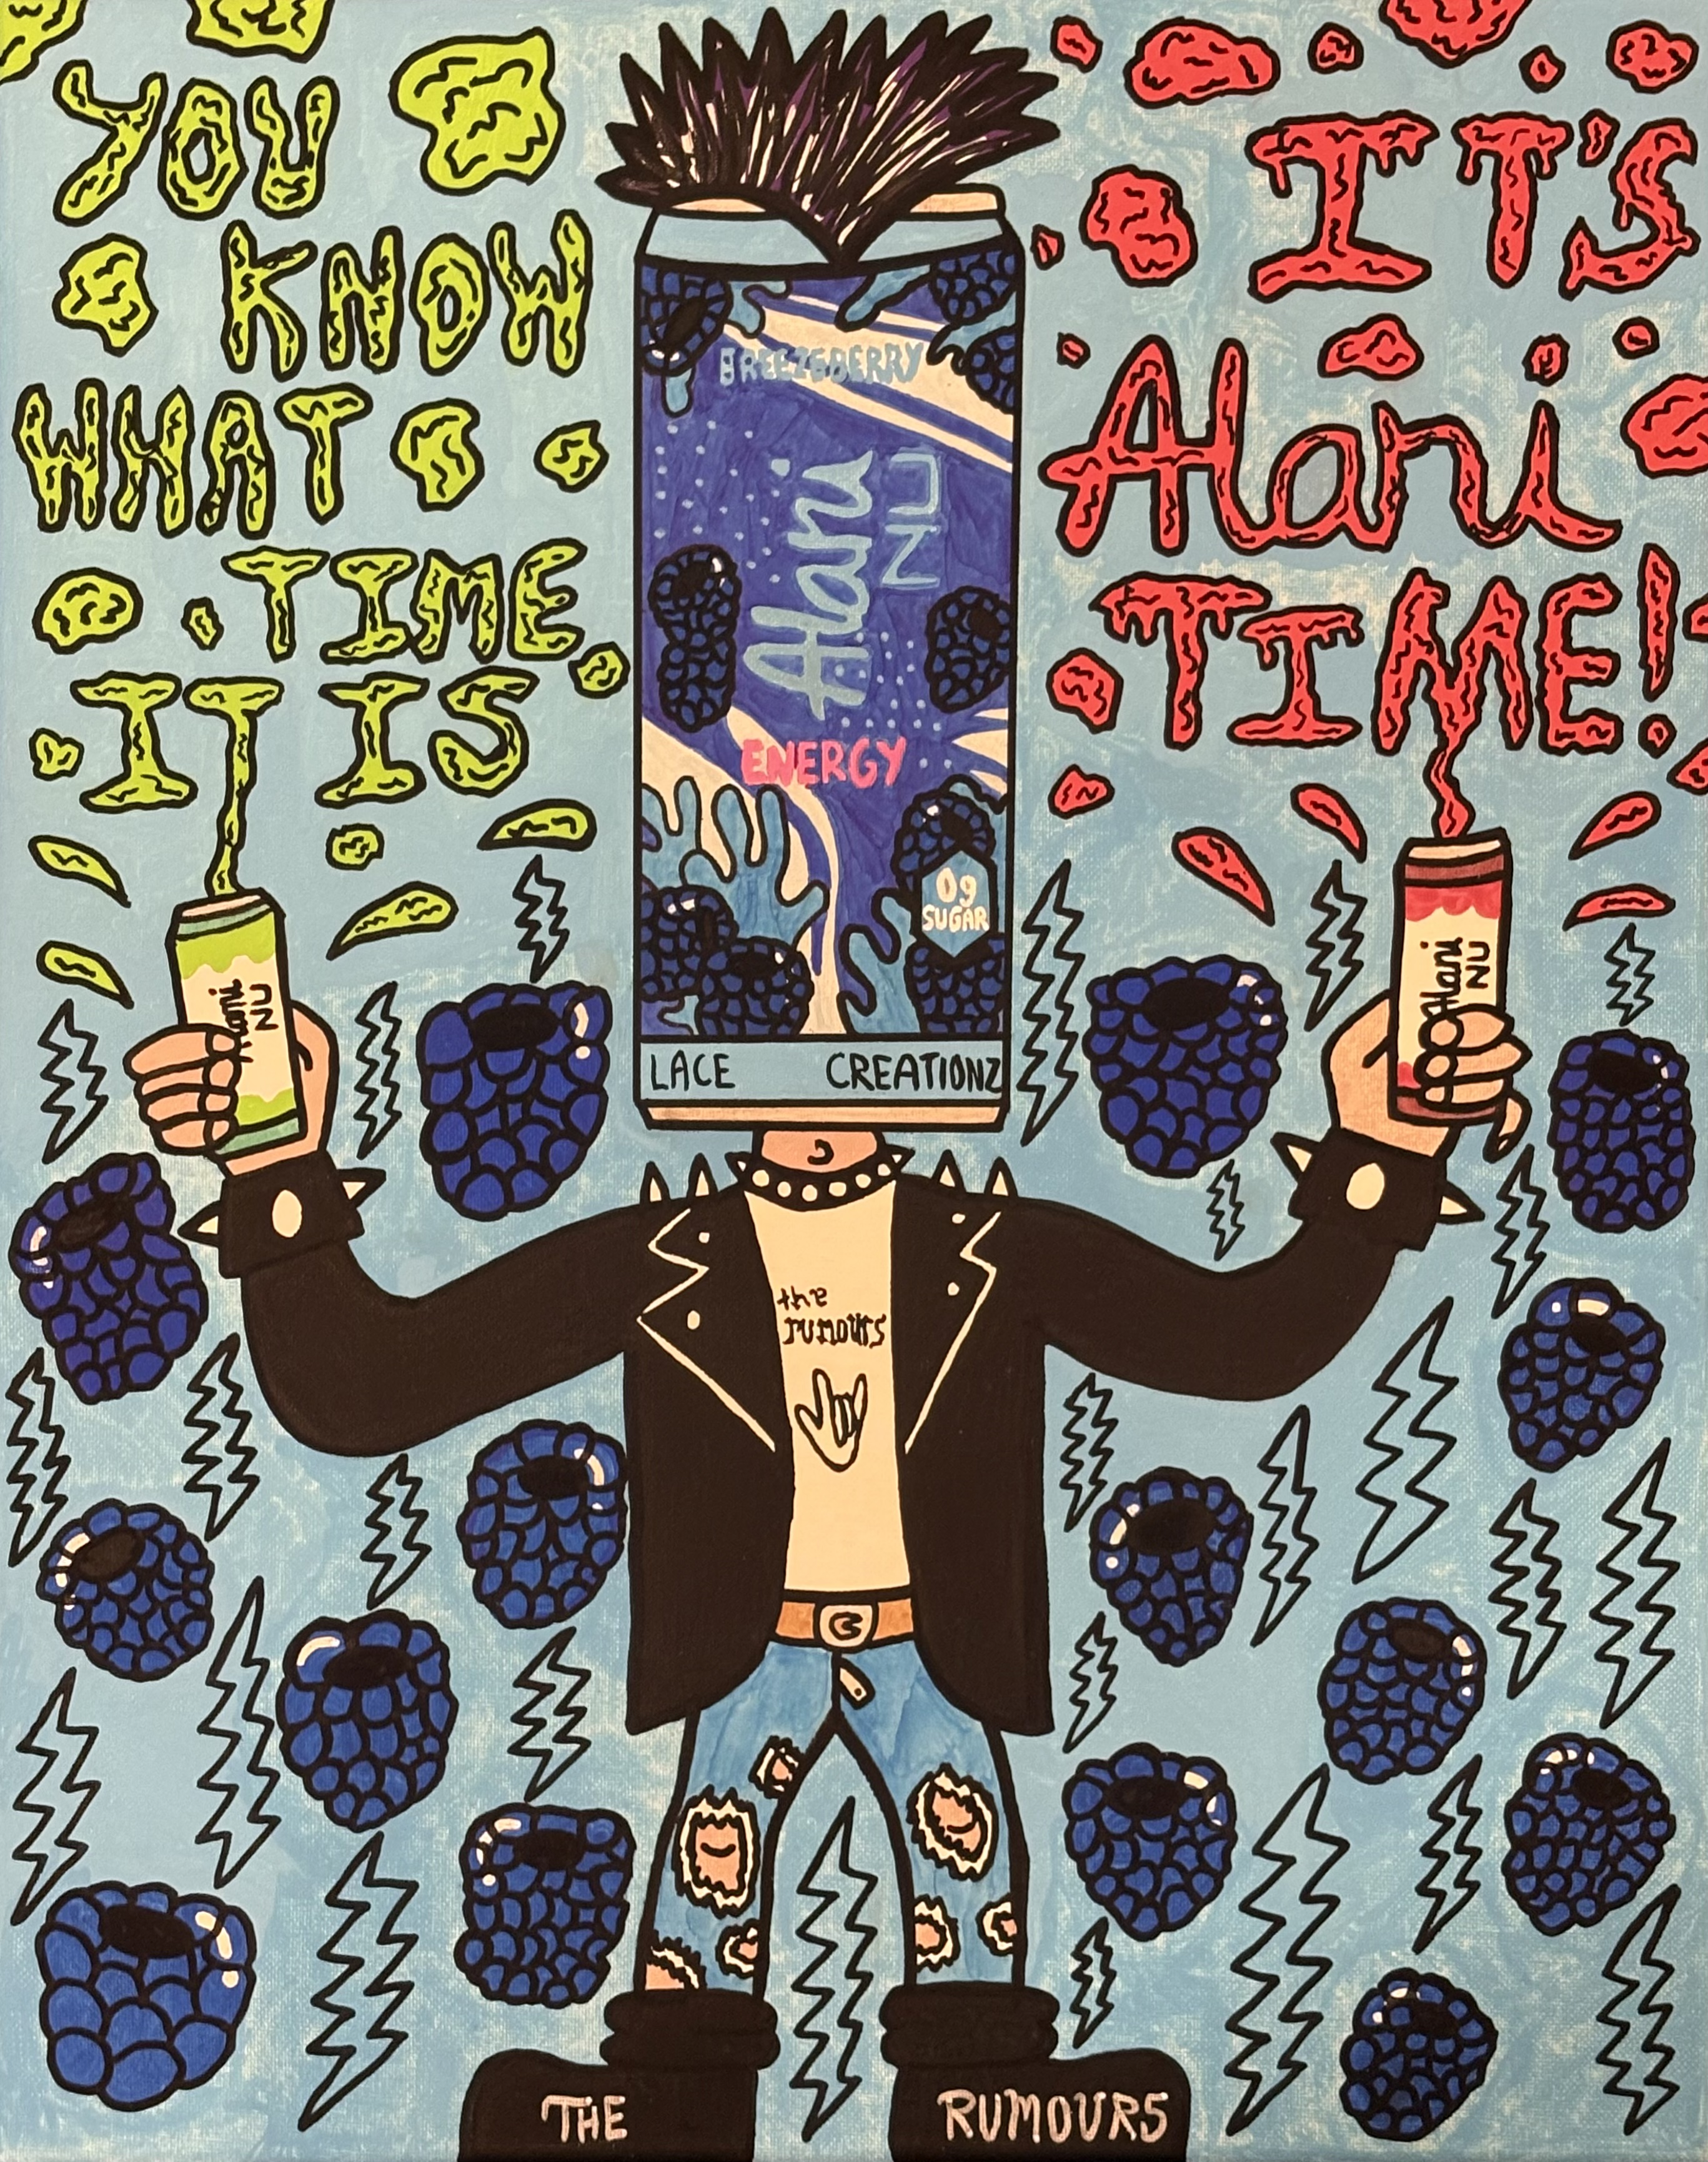 YOU
KNOW
WHAT
TIME
IT IS
IT'S
Alani
TIME!
BREEZEBERRY
Alani
NU
ENERGY
0g
SUGAR
LACE CREATIONZ
Alani
NU
Alani
NU
the
rumours
THE RUMOURS